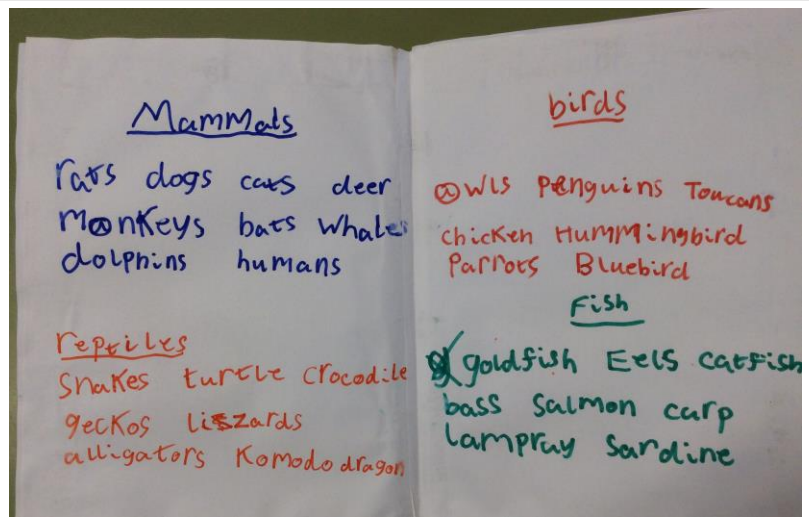 Mammals
rats dogs cats deer
monkeys bats whales
dolphins humans
reptiles
snakes turtle crocodile
geckos liszards
alligators Komodo dragon
birds
owls penguins Toucans
chicken Hummingbird
Parrots Bluebird
Fish
goldfish Eels catfish
bass salmon carp
lampray sardine